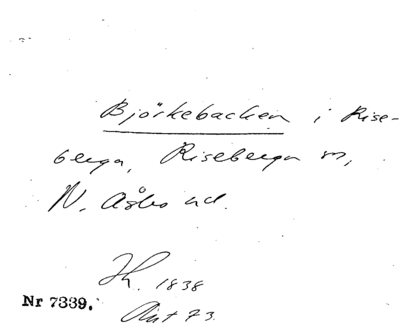 Björkebacken i Rise-
berga, Riseberga sn,
N. Åsbo hd.
Jh. 1838
Nr 7339.
Akt 73.